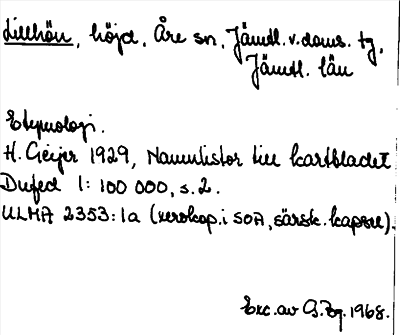 Lillhön, höjd, Åre sn, Jämtl. v. doms. tg,
Jämtl. län
Etymologi.
H. Geijer 1929, Namnlistor till kartbladet
Dufed 1: 100 000, s. 2.
ULMA 2353: 1a (xerokop. i SOA, särsk. kapsel).
Exc. av 1968.